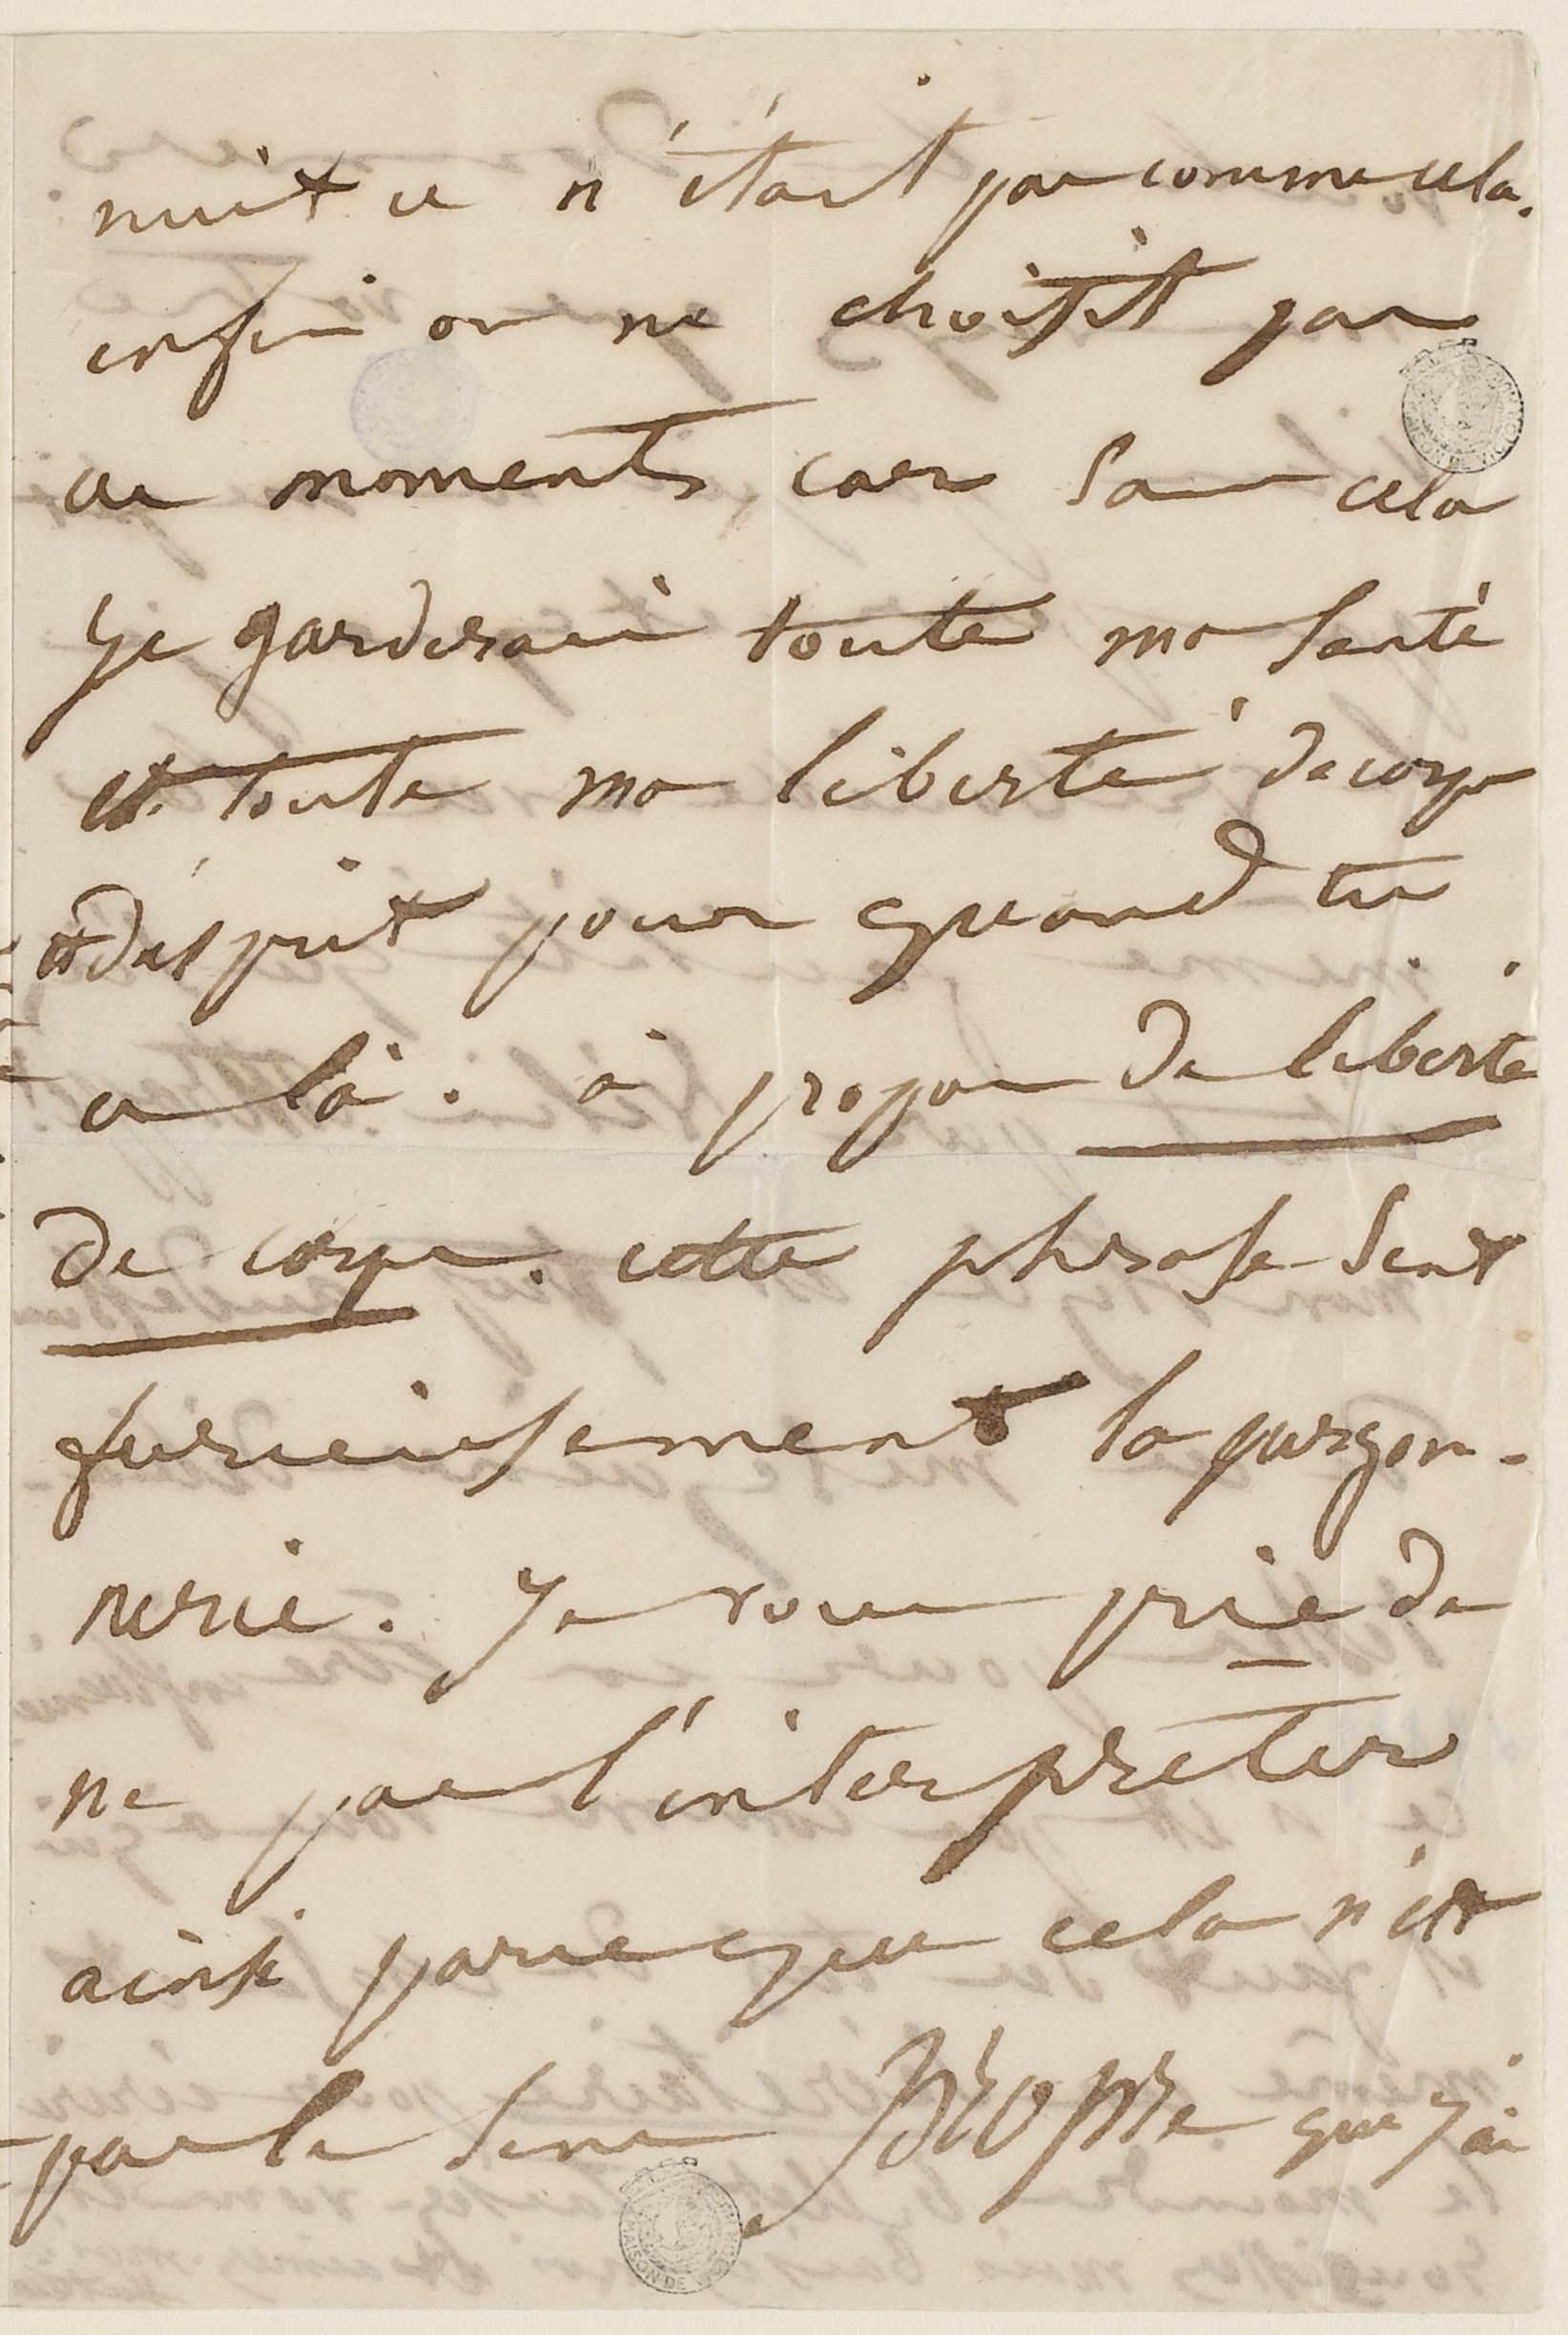 nuit ce n'était pas comme cela.
enfin on ne choisit pas
ces moments, car sans cela
je garderais toute ma santé
et toute ma liberté de corps
et d'esprit pour quand tu
es là. à propos de liberté
de corps. cette phrase sent
furieusement la purgon-
nerie. Je vous prie de
ne pas l'interpréter
ainsi parce que cela n'est
pas le sens propre que j'ai
MAISON DE